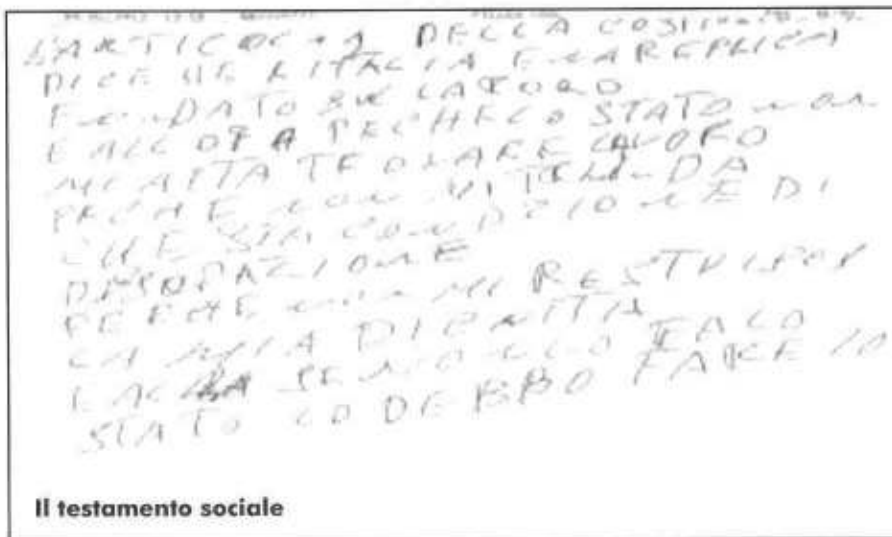 L'ARTICOLO 1 DELLA
DICE HE LITALIA E UNA REPLICA
FUNDATO SUL LAVORO
E ALLORA PECHE LO STATO NON
MI AITA TROVARE LAVORO
PECHE NON
CHE STA CONDZIONE DI
DISPERAZIONE
PERCHE NON MI RESTVISCE
LA MIA DIGNITA
E ALLORA SE NON LO FA LO
STATO LO DEBBO FARE IO
Il testamento sociale